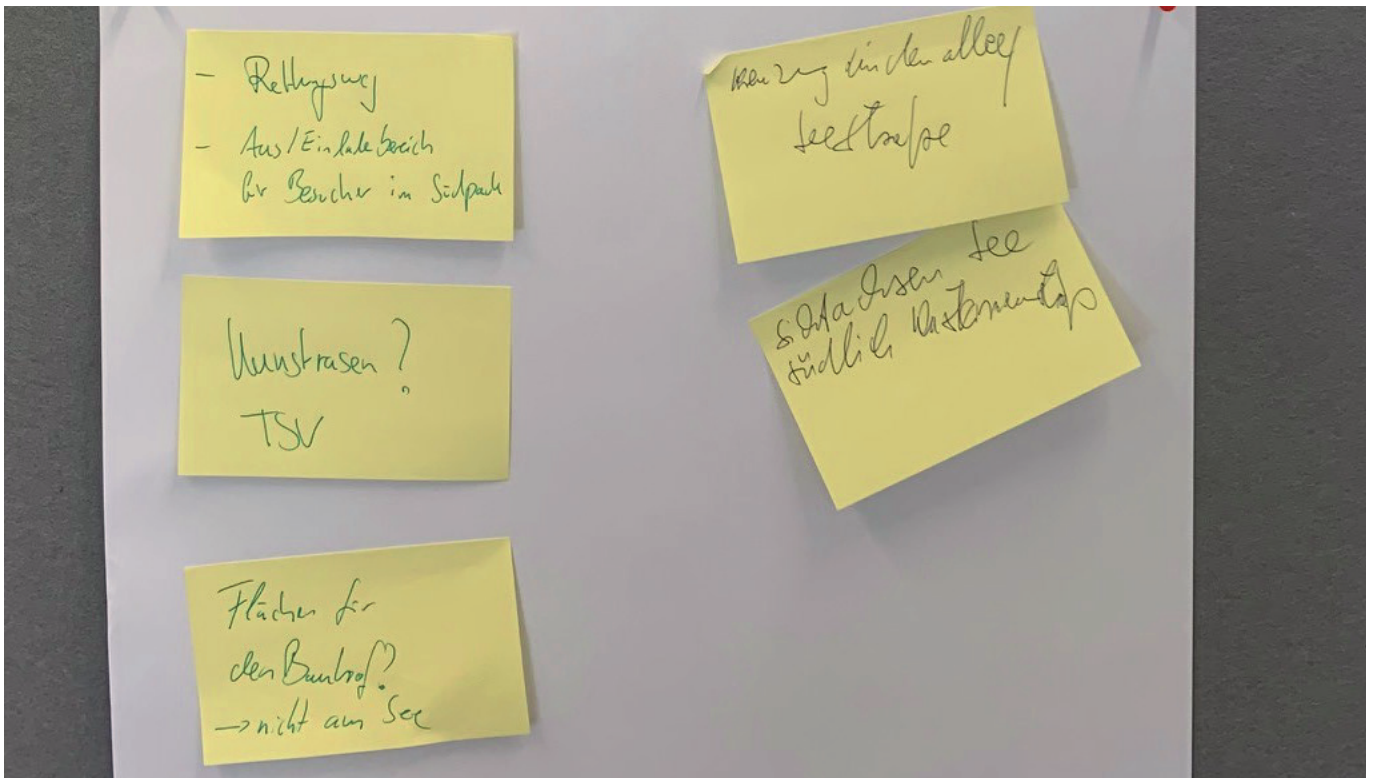 - Rettungsweg
- Aus/Einladebereich
für Besucher im Südpark
Kunstrasen?
TSV
Flächen für
den Bauhof?
→ nicht am See
Kreuzung Lindenallee/
Seestraße
Sichtachsen See
südlich